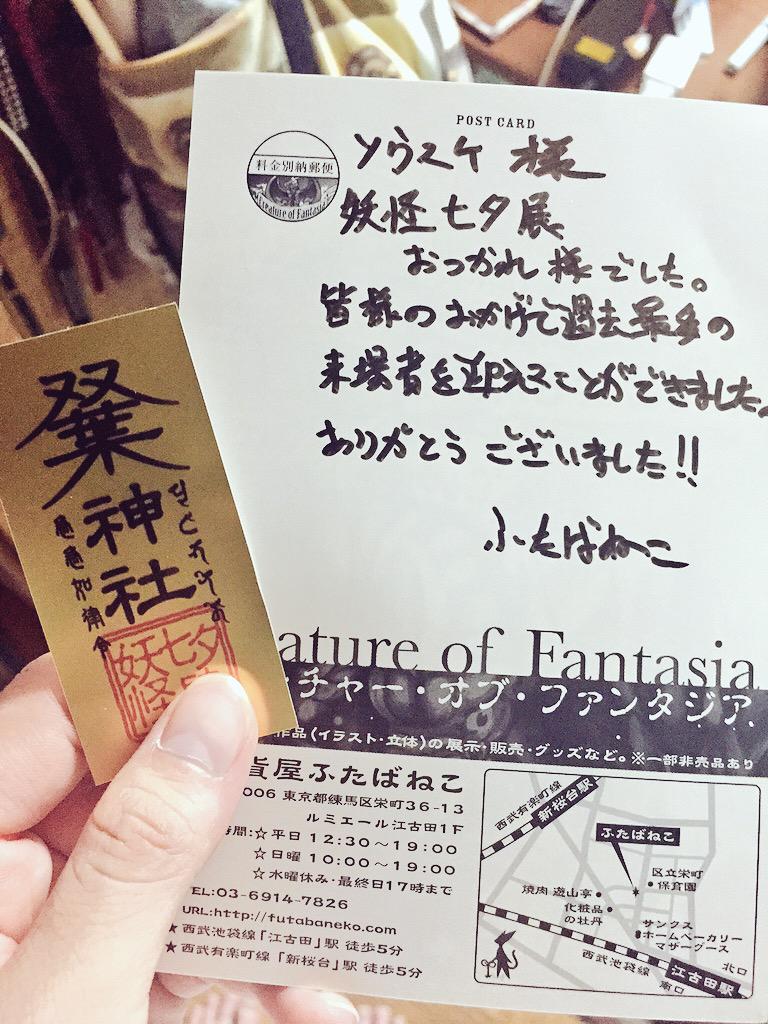 POST CARD
料金別納郵便
Creature of Fantasia
ソウスケ 様
妖怪七夕展
おつかれ様でした。
皆様のおかげで過去最多の
来場者を迎えることができました。
ありがとうございました!!
ふたばねこ
双葉
神社
急急如律令
七夕
妖怪
ature of Fantasia
ーチャー・オブ・ファンタジア
作品(イラスト・立体)の展示・販売・グッズなど。※一部非売品あり
貨屋ふたばねこ
006 東京都練馬区栄町36-13
ルミエール江古田1F
時間:☆平日 12:30～19:00
☆日曜 10:00～19:00
☆水曜休み・最終日17時まで
TEL:03-6914-7826
URL:http://futabaneko.com
★西武池袋線「江古田」駅 徒歩5分
★西武有楽町線「新桜台」駅 徒歩5分
西武有楽町線
新桜台駅
ふたばねこ
区立栄町
保育園
焼肉 遊山亭
化粧品
の牡丹
サンクス
ホームベーカリー
マザーグース
西武池袋線
江古田駅
北口
南口